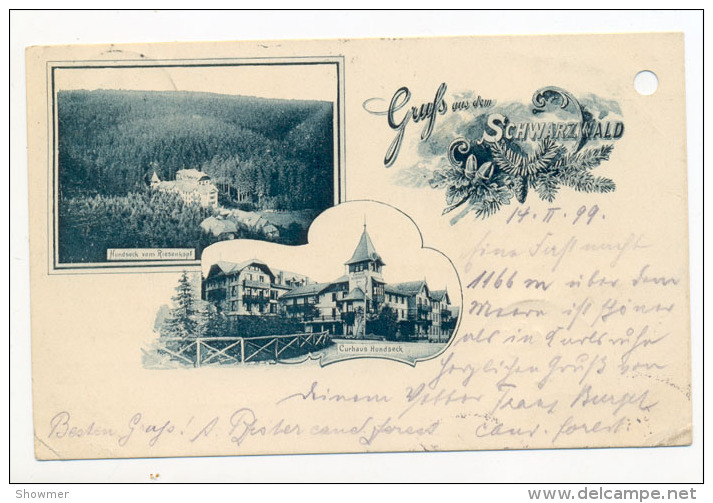 Gruß aus dem
SCHWARZWALD
Hundseck vom Riesenkopf
Curhaus Hundseck
14. II. 99.
Eine Fastnacht
1166 m über dem
Meere ist schöner
als in Carlsruhe
Herzlichen Gruß von
deinem Vetter Franz Burget
cand. forest.
Besten Gruß! A. Pfister cand. forest
Showmer
http://www.delcampe.net